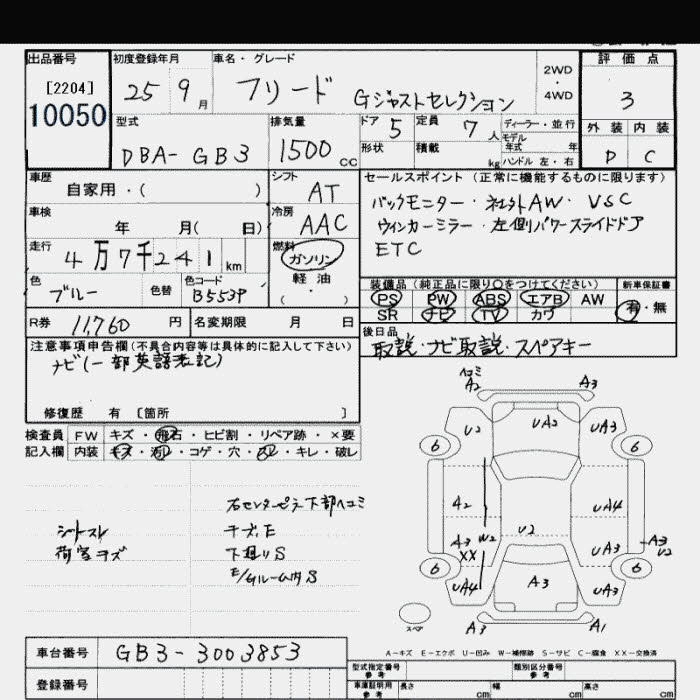 出品番号 初度登録年月 車名・グレード 評価点
[2204] 25 9月 フリード 2WD 3
10050 Gジャストセレクション 4WD
型式 排気量 ドア 5 定員 7人 ディーラー・並行 外装 内装
DBA-GB3 1500cc 形状 積載 kg モデル年式 年 D C
ハンドル 左・右
車歴 シフト セールスポイント (正常に機能するものに限ります)
自家用・( ) AT バックモニター・社外AW・VSC
車検 冷房 ウィンカーミラー・左側パワースライドドア
年 月( 日) AAC ETC
走行 燃料
4万7千241km ガソリン
軽油
( ・ )
色 色替 色コード 装備品 (純正品に限り○をつけてください) 新車保証書
ブルー B553P PS PW ABS エアB AW 有・無
SR ナビ TV カワ
R券 11,760円 名変期限 月 日 後日品
取説・ナビ取説・スペアキー
注意事項申告欄(不具合内容等は具体的に記入して下さい)
ナビ(一部英語表記)
修復歴 有 [箇所 ]
検査員 FW キズ・飛石・ヒビ割・リペア跡・×要
記入欄 内装 キズ・汚レ・コゲ・穴・スレ・キレ・破レ
右センターピラー下部ヘコミ
シートスレ
荷室キズ
下廻りS
E/GルームS
ヘコミ
A2 A3
U2 UA2 UA3
6 6
A2 UA4
A3 W2 U2 UA3 A3
XX U2
6 6
UA4 A3 UA3
スペア A3 A1
A-キズ E-エクボ U-凹み W-補修跡 S-サビ C-腐食 XX-交換済
車台番号 GB3-3003853
登録番号
型式指定番号 参考 類別区分番号 参考
車庫証明用 参考 長さ cm 幅 cm 高さ cm